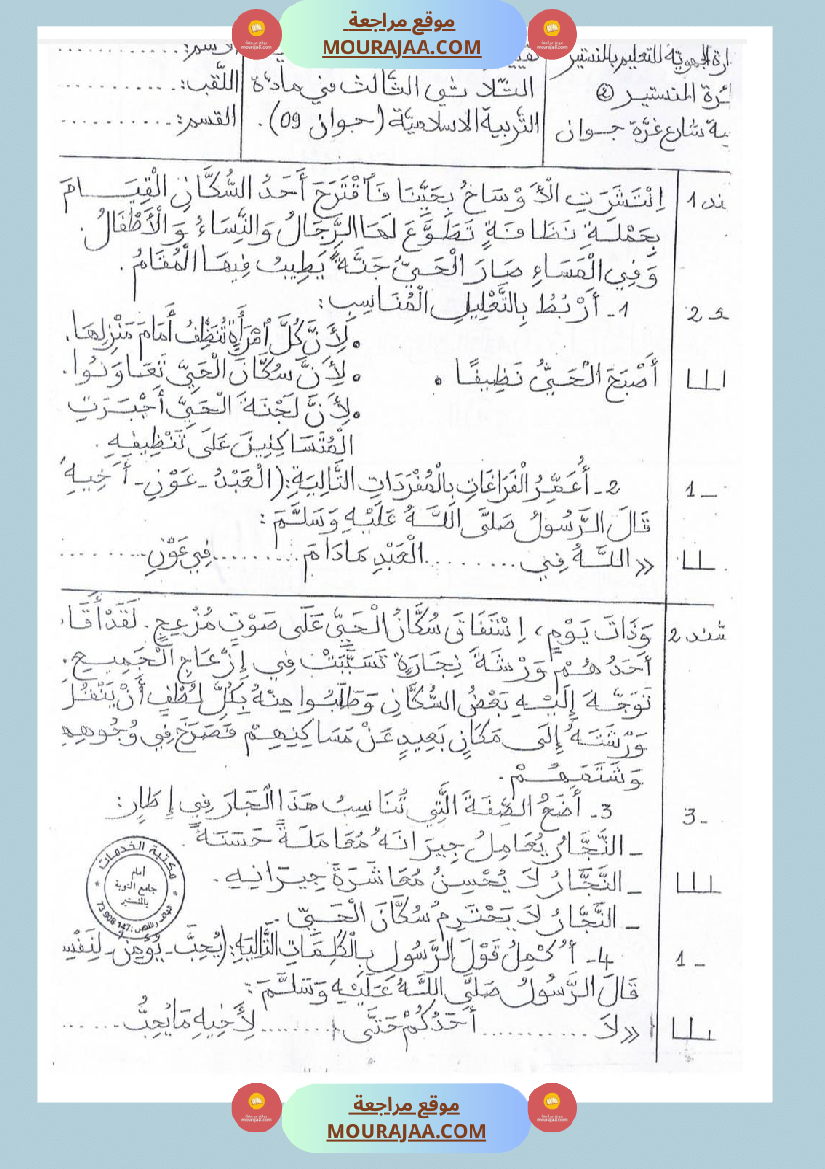 موقع مراجعة
MOURAJAA.COM
الثلاثي الثالث في مادة
التربية الإسلامية (جوان 09).
اللّقب: ............
القسم: ............
دائرة المنستير 2
شارع غزّة جوان
سند 1
اِنْتَشَرَتِ الْأَوْسَاخُ بِحَيِّنَا فَاقْتَرَحَ أَحَدُ السُّكَّانِ الْقِيَامَ
بِحَمْلَةِ نَظَافَةٍ تَطَوَّعَ لَهَا الرِّجَالُ وَالنِّسَاءُ وَالْأَطْفَالُ.
وَفِي الْمَسَاءِ صَارَ الْحَيُّ جَنَّةً يَطِيبُ فِيهَا الْمُقَامُ.
1- أَرْبُطُ بِالتَّعْلِيلِ الْمُنَاسِبِ:
• لِأَنَّ كُلَّ امْرَأَةٍ تُنَظِّفُ أَمَامَ مَنْزِلِهَا.
أَصْبَحَ الْحَيُّ نَظِيفًا •
• لِأَنَّ سُكَّانَ الْحَيِّ تَعَاوَنُوا.
• لِأَنَّ لَجْنَةَ الْحَيِّ أَجْبَرَتِ
الْمُتَسَاكِنِينَ عَلَى تَنْظِيفِهِ.
2- أُعَمِّرُ الْفَرَاغَاتِ بِالْمُفْرَدَاتِ التَّالِيَةِ: (الْعَبْدُ - عَوْنِ - أَخِيهِ
قَالَ الرَّسُولُ صَلَّى اللَّهُ عَلَيْهِ وَسَلَّمَ:
« اللَّهُ فِي ......... الْعَبْدِ مَادَامَ ......... فِي عَوْنِ .........
سند 2
وَذَاتَ يَوْمٍ، اِسْتَفَاقَ سُكَّانُ الْحَيِّ عَلَى صَوْتٍ مُزْعِجٍ. لَقَدْ أَقَا
أَحَدُهُمْ وَرْشَةَ نِجَارَةٍ تَسَبَّبَتْ فِي إِزْعَاجِ الْجَمِيعِ.
تَوَجَّهَ إِلَيْهِ بَعْضُ السُّكَّانِ وَطَلَبُوا مِنْهُ بِكُلِّ لُطْفٍ أَنْ يَنْقُلَ
وَرْشَتَهُ إِلَى مَكَانٍ بَعِيدٍ عَنْ مَسَاكِنِهِمْ فَصَرَخَ فِي وُجُوهِهِمْ
وَشَتَمَهُمْ.
3- أَضَعُ الصِّفَةَ الَّتِي تُنَاسِبُ هَذَا الْجَارَ فِي إِطَارٍ:
- النَّجَّارُ يُعَامِلُ جِيرَانَهُ مُعَامَلَةً حَسَنَةً.
- النَّجَّارُ لَا يُحْسِنُ مُعَاشَرَةَ جِيرَانِهِ.
- النَّجَّارُ لَا يَحْتَرِمُ سُكَّانَ الْحَيِّ.
مكتبة الخدمات
أمام
جامع التوبة
بالمنستير
4- أُكْمِلُ قَوْلَ الرَّسُولِ بِالْكَلِمَاتِ التَّالِيَةِ: (يُحِبَّ - يُؤْمِنُ - لِنَفْسِ
قَالَ الرَّسُولُ صَلَّى اللَّهُ عَلَيْهِ وَسَلَّمَ:
« لَا ......... أَحَدُكُمْ حَتَّى ......... لِأَخِيهِ مَا يُحِبُّ .........
موقع مراجعة
MOURAJAA.COM